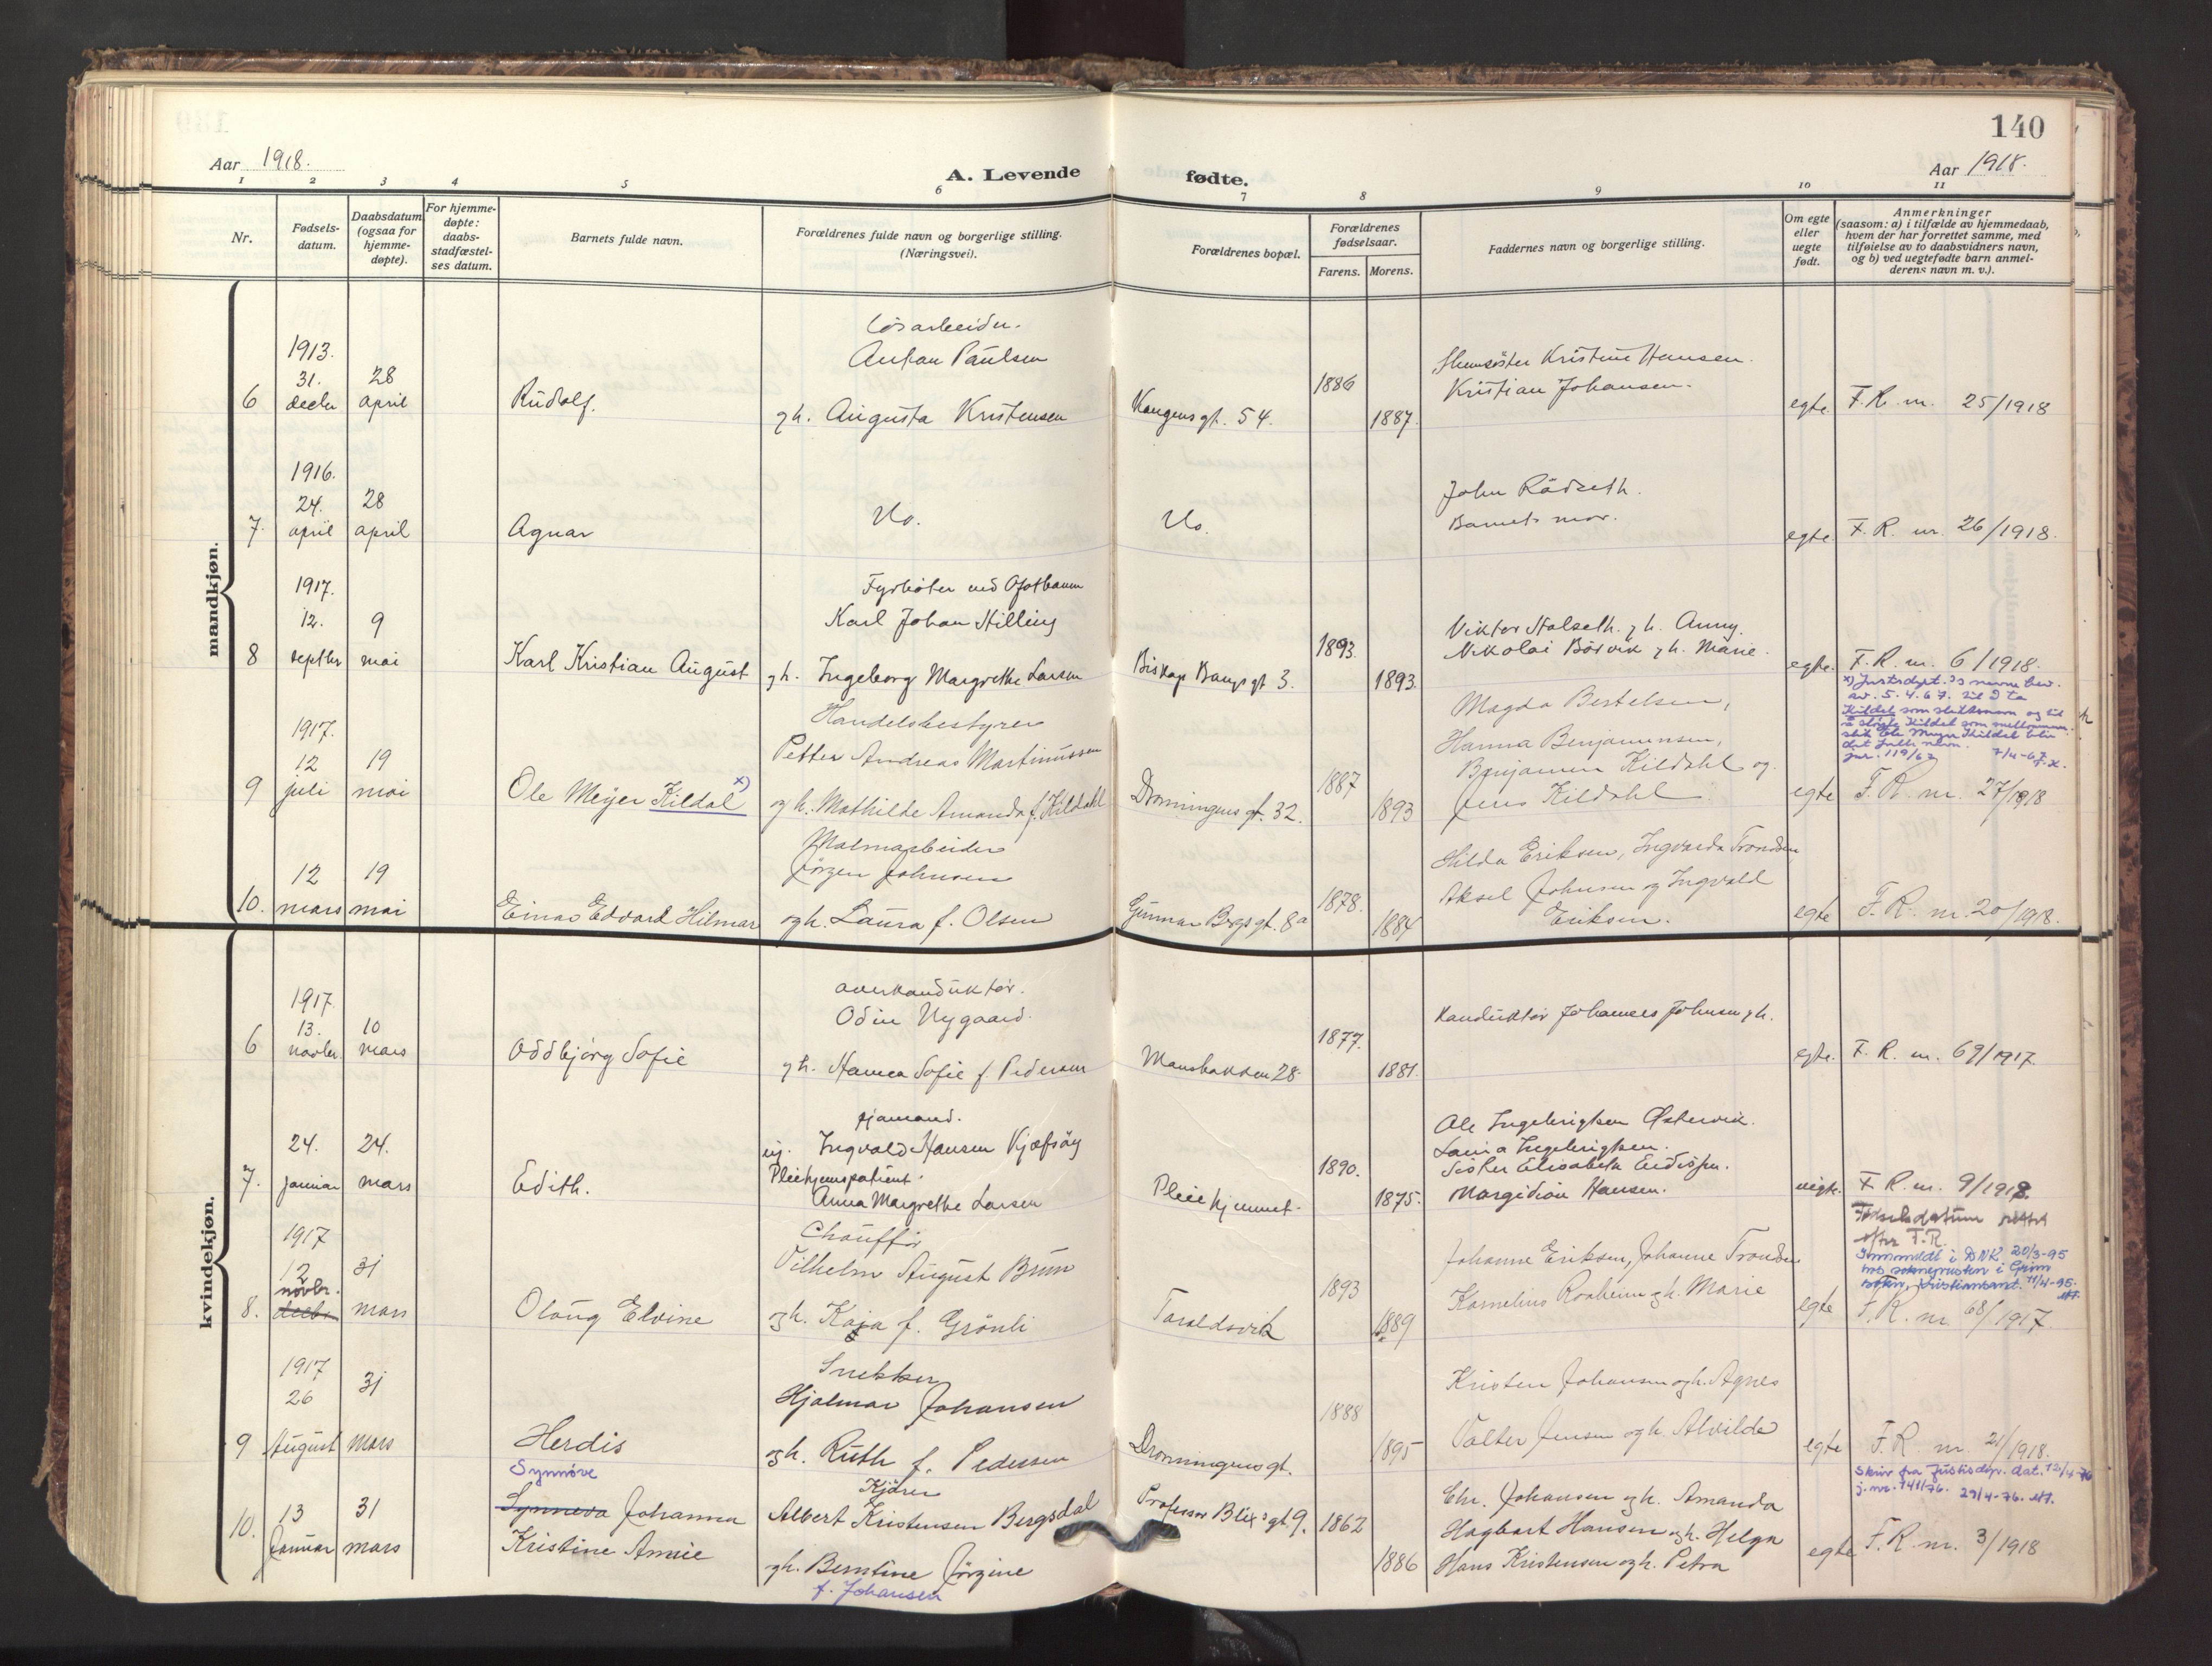 140
Aar 1918.
A. Levende fødte.
Aar 1918.
1 2 3 4 5 6 7 8 9 10 11
Nr.
Fødsels-
datum.
Daabsdatum
(ogsaa for
hjemme-
døpte).
For hjemme-
døpte:
daabs-
stadfæstel-
ses datum.
Barnets fulde navn.
Forældrenes fulde navn og borgerlige stilling.
(Næringsvei).
Forældrenes bopæl.
Forældrenes
fødselsaar.
Farens. Morens.
Faddernes navn og borgerlige stilling.
Om egte
eller
uegte
født.
Anmerkninger
(saasom: a) i tilfælde av hjemmedaab,
hvem der har forrettet samme, med
tilføielse av to daabsvidners navn,
og b) ved uegtefødte barn anmel-
derens navn m. v.).
mandkjøn.
6
1913.
31.
decbr
28
april
Rudolf.
Løsarbeider.
Anton Paulsen
g h. Augusta Kristensen
Kongensgt. 54.
1886
1887.
Kristine Hansen.
Kristian Johansen.
egte
F. R. nr. 25/1918
7.
1916.
24.
april
28
april
Agnar
Do.
Do.
John Rödseth.
Barnets mor.
egte.
F. R. nr. 26/1918.
8
1917.
12.
septbr
9
mai
Karl Kristian August
Fyrbøter ved Ofotbanen
Karl Johan Hilling
g h. Ingeborg Margrethe Larsen
Biskop Bangs gt 3.
1893.
1893.
Viktor Halseth. g h. Anny.
Nikolai Börvik g h. Marie.
egte.
F. R. nr. 6/1918.
9
1917.
12
juli
19
mai
Ole Meyer Kildal x)
Handelsbestyrer
Petter Andreas Martinussen
og h. Mathilde Amanda f. Kildahl
Dronningens gt. 32.
1887
1893
Magda Bertelsen,
Hanna Benjaminsen,
Benjamin Kildahl og
Jens Kildahl
egte
x) Justisdept.s navnebev.
av 5.4.67. til å ta
Kildal som slektsnavn og til
å sløyfe Kildal som mellomnavn
slik Ole Meyer Kildal blir
det fulle navn.
jnr. 119/67 7/4-67.
F. R. nr. 27/1918
10.
12
mars
19
mai
Einar Edvard Hilmar
Malmarbeider
Jörgen Johnsen
og h. Laura f. Olsen
Gunnar Bergs gt. 8a
1878.
1884
Hilda Eriksen, Ingvarda Trondsen
Aksel Johnsen og Ingvald
Eriksen.
egte
F. R. nr. 20/1918.
kvindekjøn.
6
1917
13.
novbr.
10
mars
Oddbjörg Sofie
overkonduktör.
Odin Nygaard.
g h. Hanna Sofie f. Pedersen
28
1877.
1881.
Konduktör Johannes Johnsen g h.
egte.
F. R. nr. 69/1917.
7.
24.
januar
24.
mars
Edith.
sjømand.
uj. Ingvald Hansen Kjøfsöy
Pleiehjemspatient.
Anna Margrethe Larsen
Pleiehjemmet.
1890.
1875.
Ole Ingebrigtsen Østervik.
Laura Ingebrigtsen.
Söster Elisabeth
Hansen.
uegte.
F. R. nr. 9/1918.
8.
1917
12
novbr.
decbr.
31
mars
Olaug Elvine
Chaufför
Vilhelm August Bruun
og h. Kaja f. Grönli
Taraldsvik
1893
1889
Johanne Eriksen, Johanne Trondsen
Kornelius Roaheim g h. Marie
egte
Fødselsdatum rettet
efter F.R.
Innmeldt i DNK 20/3-95
hos soknepresten i Grim
sokn, Kristiansand. 11/4-95.
F. R. nr. 68/1917.
9
1917
26
August
31
mars
Herdis
Snekker
Hjalmar Johansen
og h. Ruth f. Pedersen
Dronningens gt.
1888
1895
Kristen Johansen og h. Agnes
Valter Jensen og h. Alvilde
egte
F. R. nr. 21/1918.
10.
13
Januar
31
mars
Synnöve
Synneva Johanna
Kristine Annie
Kjörer
Albert Kristensen Bergsdal
g h. Berntine Jörgine
f. Johansen
Professor Blix's gt. 9.
1862
1886
Chr. Johansen og h. Amanda
Hagbart Hansen og h. Helga
Hans Kristensen og h. Petra
egte
Skriv fra Justisdep. dat. 12/4-76
j.nr. 141/76. 29/4-76.
F. R. nr. 3/1918